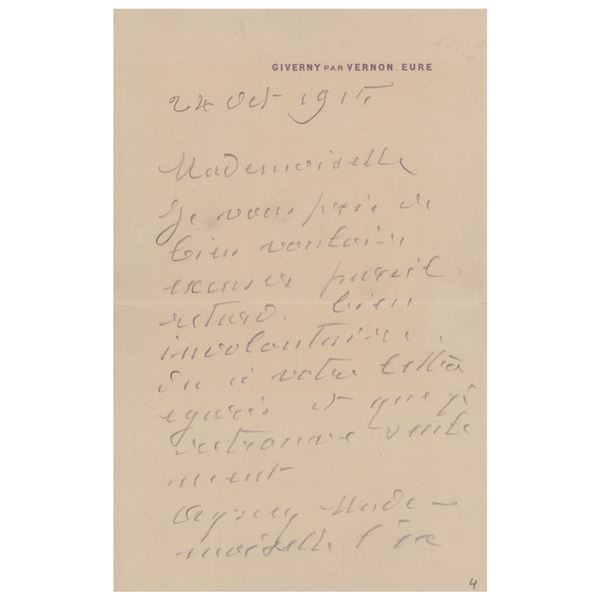 GIVERNY PAR VERNON. EURE
24 Oct 1915
Mademoiselle
Je vous prie de
bien vouloir
excuser pareil
retard, bien
involontaire,
dû à votre lettre
égarée et que je
retrouve seule
ment
Agréez Made-
moiselle l'ex
4